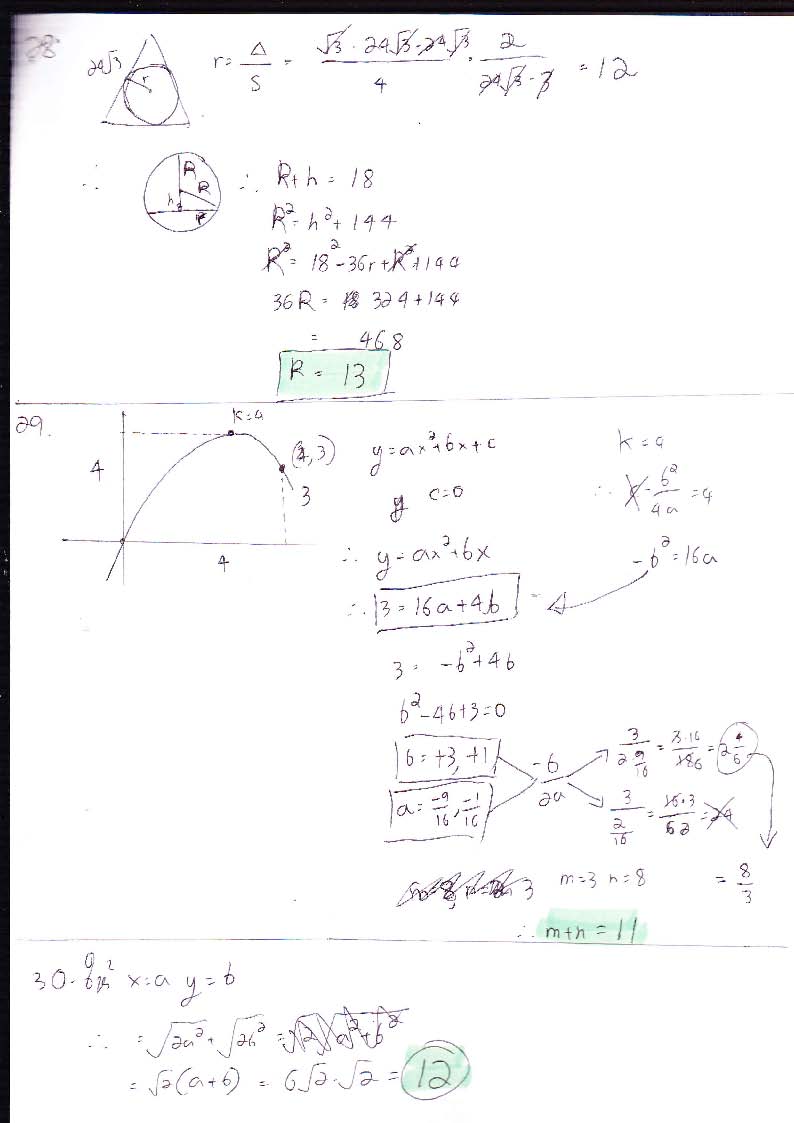 28
24√3
r
r = Δ/S = (√3 · 24√3 · 24√3)/4 · 2/(24√3 · 3) = 12
∴
R
R
h
r
∴ R+h = 18
R² = h² + 144
R² = 18² - 36r + R² + 144
36R = 324 + 144
= 468
R = 13
29.
K=4
4
(4, 3)
3
4
y = ax² + bx + c
y c=0
∴ y = ax² + bx
∴ 3 = 16a + 4b
3 = -b² + 4b
b² - 4b + 3 = 0
b = +3, +1
a = -9/16, -1/16
-b/2a
K = 4
∴ -b²/4a = 4
-b² = 16a
3/(2 9/16) = 3·16/186 = 2 4/6
3/(2/16) = 16·3/62 = 24
= 8/3
m=3 n=8
∴ m+n = 11
30. x=a y=b
∴ = √2a² + √2b² = √2 √a²+b²
= √2(a+b) = 6√2·√2 = 12